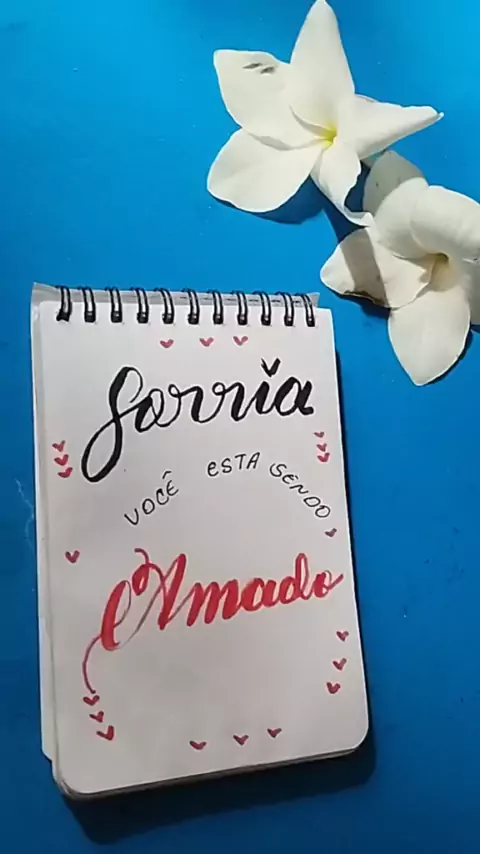 Sorria
VOCÊ ESTA SENDO
Amado